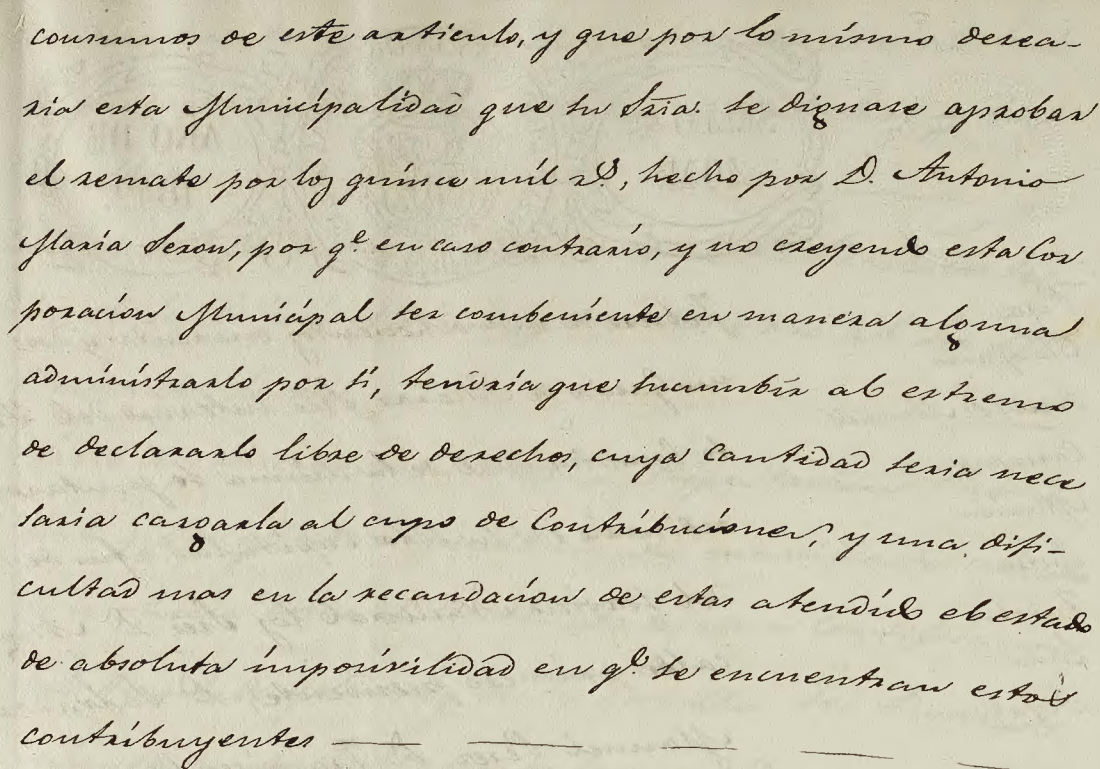 consumos de este articulo, y que por lo mismo desea-
ria esta Municipalidad que su Sria. se dignase aprobar
el remate por los quince mil rs., hecho por D. Antonio
Maria Seron, por qe. en caso contrario, y no creyendo esta Cor
poracion Municipal ser combeniente en manera alguna
administrarlo por si, tendria que sucumbir al estremo
de declararlo libre de derechos, cuya Cantidad seria nece
saria cargarla al cupo de Contribuciones, y una difi-
cultad mas en la recaudacion de estas atendido el estado
de absoluta imposivilidad en qe. se encuentran estos
contribuyentes